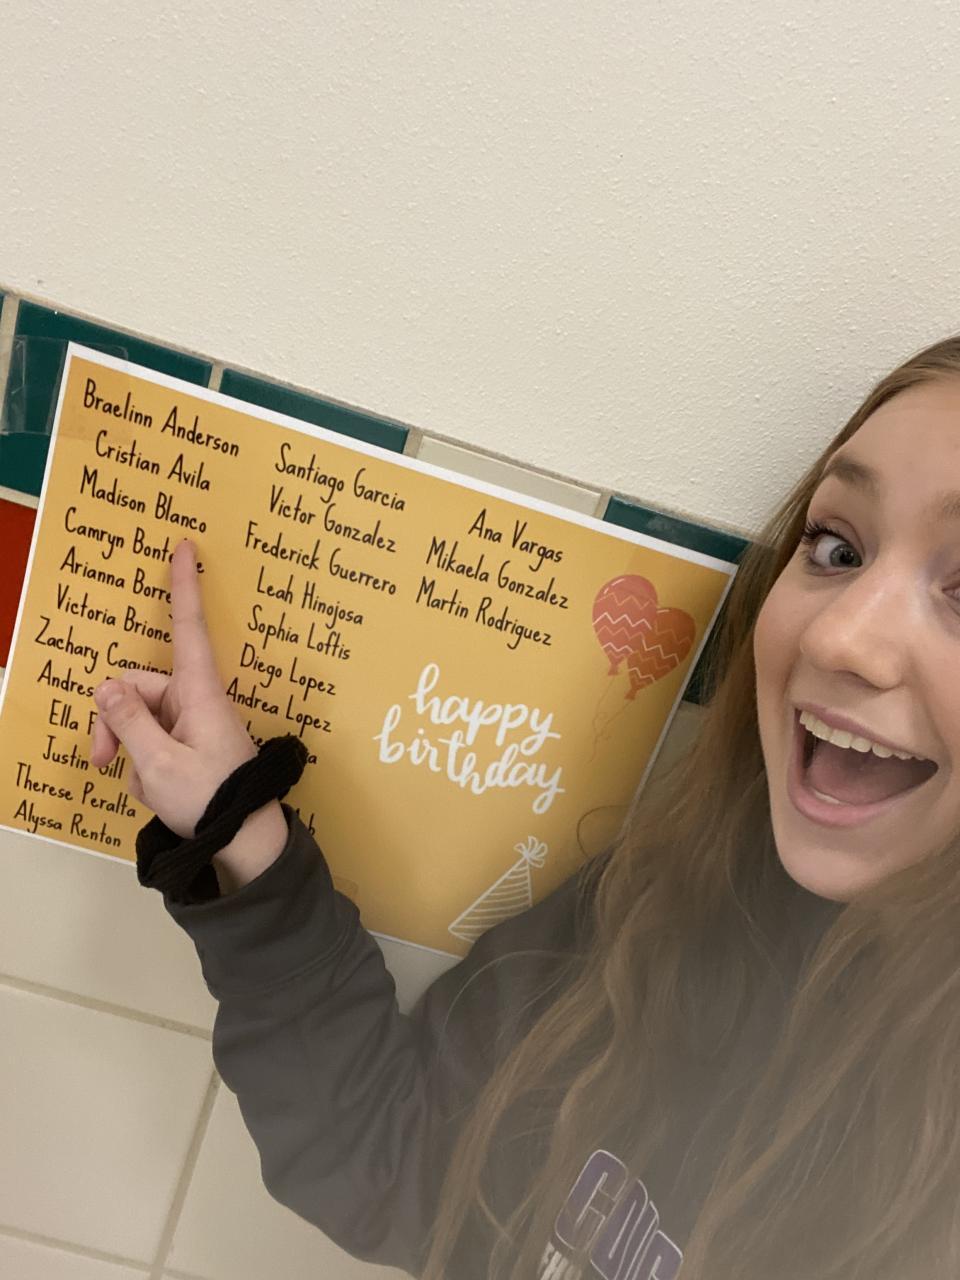 Braelinn Anderson
Cristian Avila
Madison Blanco
Camryn
Arianna
Victoria
Zachary
Andres
Ella
Justin
Therese Peralta
Alyssa Renton
Santiago Garcia
Victor Gonzalez
Frederick Guerrero
Leah Hinojosa
Sophia Loftis
Diego Lopez
Andrea Lopez
Ana Vargas
Mikaela Gonzalez
Martin Rodriguez
happy
birthday